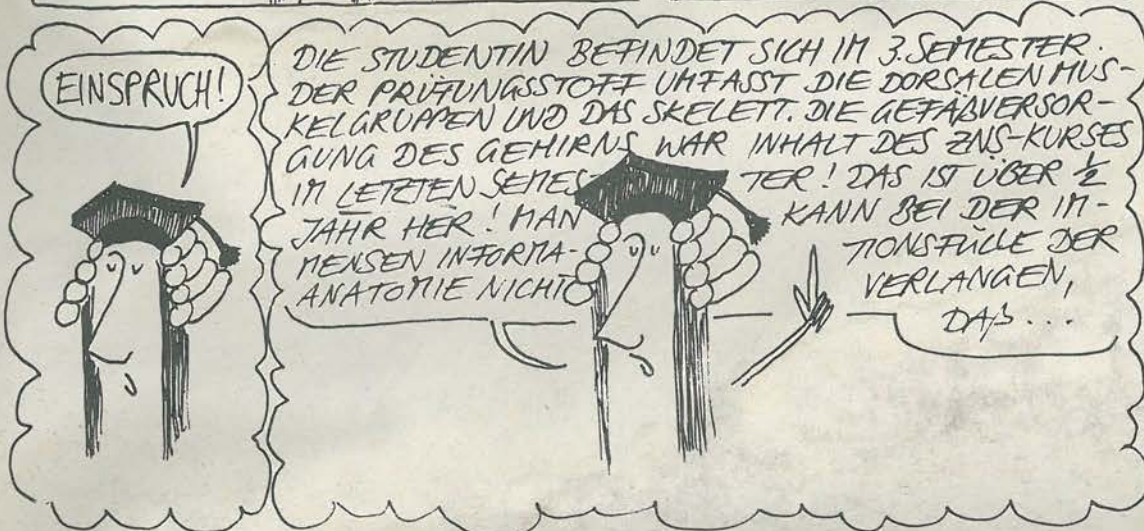 EINSPRUCH!
DIE STUDENTIN BEFINDET SICH IM 3. SEMESTER.
DER PRÜFUNGSSTOFF UMFASST DIE DORSALEN MUS-
KELGRUPPEN UND DAS SKELETT. DIE GEFÄßVERSOR-
GUNG DES GEHIRNS WAR INHALT DES ZNS-KURSES
IM LETZTEN SEMES- TER! DAS IST ÜBER ½
JAHR HER! MAN KANN BEI DER IM-
MENSEN INFORMA- TIONSFÜLLE DER
ANATOMIE NICHT VERLANGEN,
DAß...